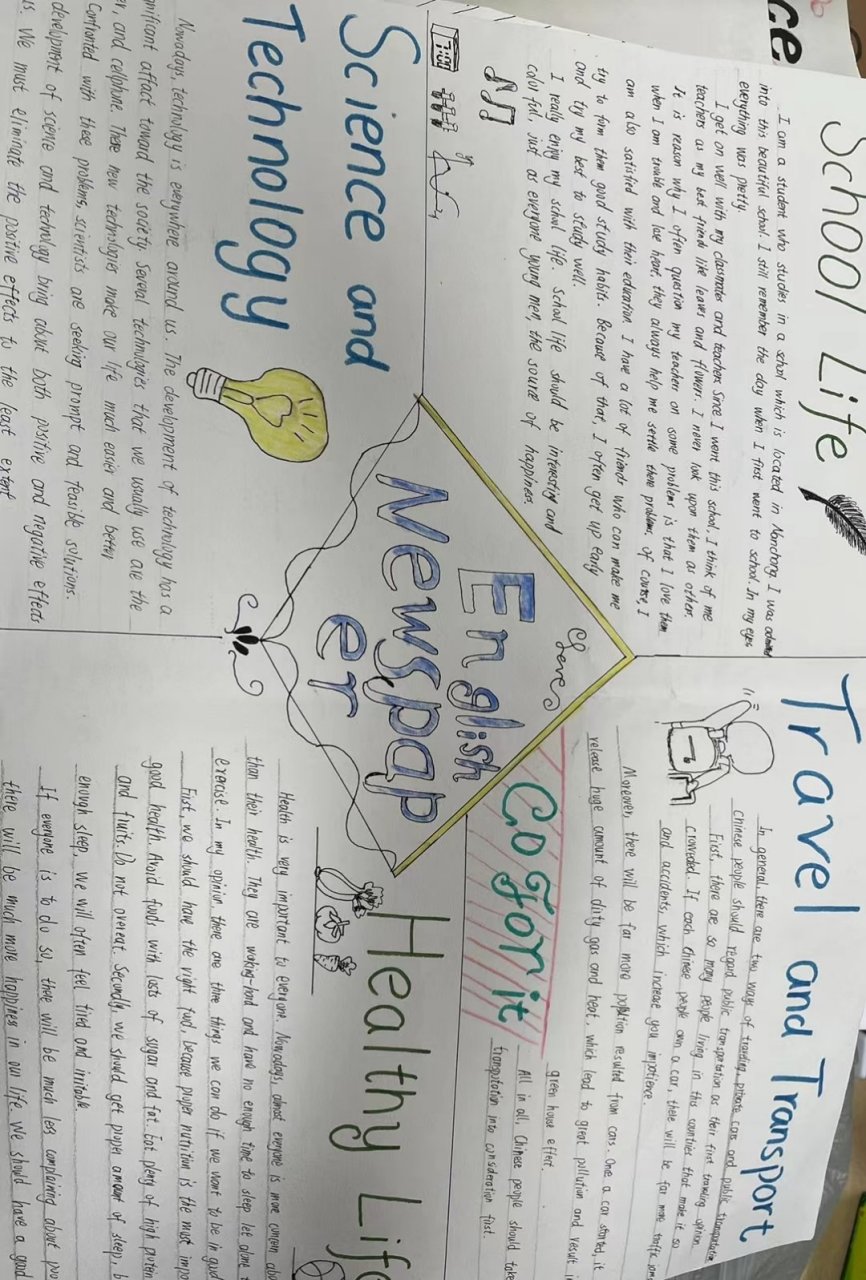 ce
School Life
I am a student who studies in a school which is located in Nanchong. I was
into this beautiful school. I still remember the day when I first went to school. In my eyes
everything was pretty.
I get on well with my classmates and teachers. Since I went this school, I think of me
teachers as my best friends like leaves and flowers. I never look upon them as others.
It is reason why I often question my teachers on some problems is that I love them
when I am trouble and heart, they always help me settle these problems. Of course, I
am also satisfied with their education. I have a lot of friends who can make me
try to form them good study habits. Because of that, I often get up early
and try my best to study well.
I really enjoy my school life. School life should be interesting and
colorful, just as everyone young men, the source of happiness.
7:00
Science and
Technology
Nowadays, technology is everywhere around us. The development of technology has a
gnificant affact toward the society. Several technologies that we usually use are the
er, and cellphone. These new technologies make our life much easier and better
Confronted with these problems, scientists are seeking prompt and feasible solutions.
development of science and technology bring about both positive and negative effects
us. We must eliminate the positive effects to the least extent
English
Newspap
er
Travel and Transport
In general, there are two ways of traveling, private cars and public transportation
Chinese people should regard public transportation as their first traveling opinion.
First, there are so many people living in this countries that make it so
crowded. If each chinese people own a car, there will be far more traffic jam
and accidents, which increase you impotience.
Moreover, there will be far more pollution resulted from cars. One a car started, it
release huge amount of dirty gas and heat, which lead to great pollution and result i
green house effect.
All in all, Chinese people should take
transportation into consideration first.
Go for it
Healthy Life
Health is very important to everyone. Nowadays, almost everyone is more concern abo
than their health. They are working-hard and have no enough time to sleep let alone t
exercise. In my opinion, there are three things we can do if we want to be in good
First, we should have the right food, because proper nutrition is the most impo
good health. Avoid foods with losts of sugar and fat. Eat plenty of high protein
and fluits. Do not overeat. Secondly, we should get proper amount of sleep, b
enough sleep, we will often feel tired and irritable
If everyone is to do so, there will be much less complaining about poo
there will be much more happiness in our life. We should have a good